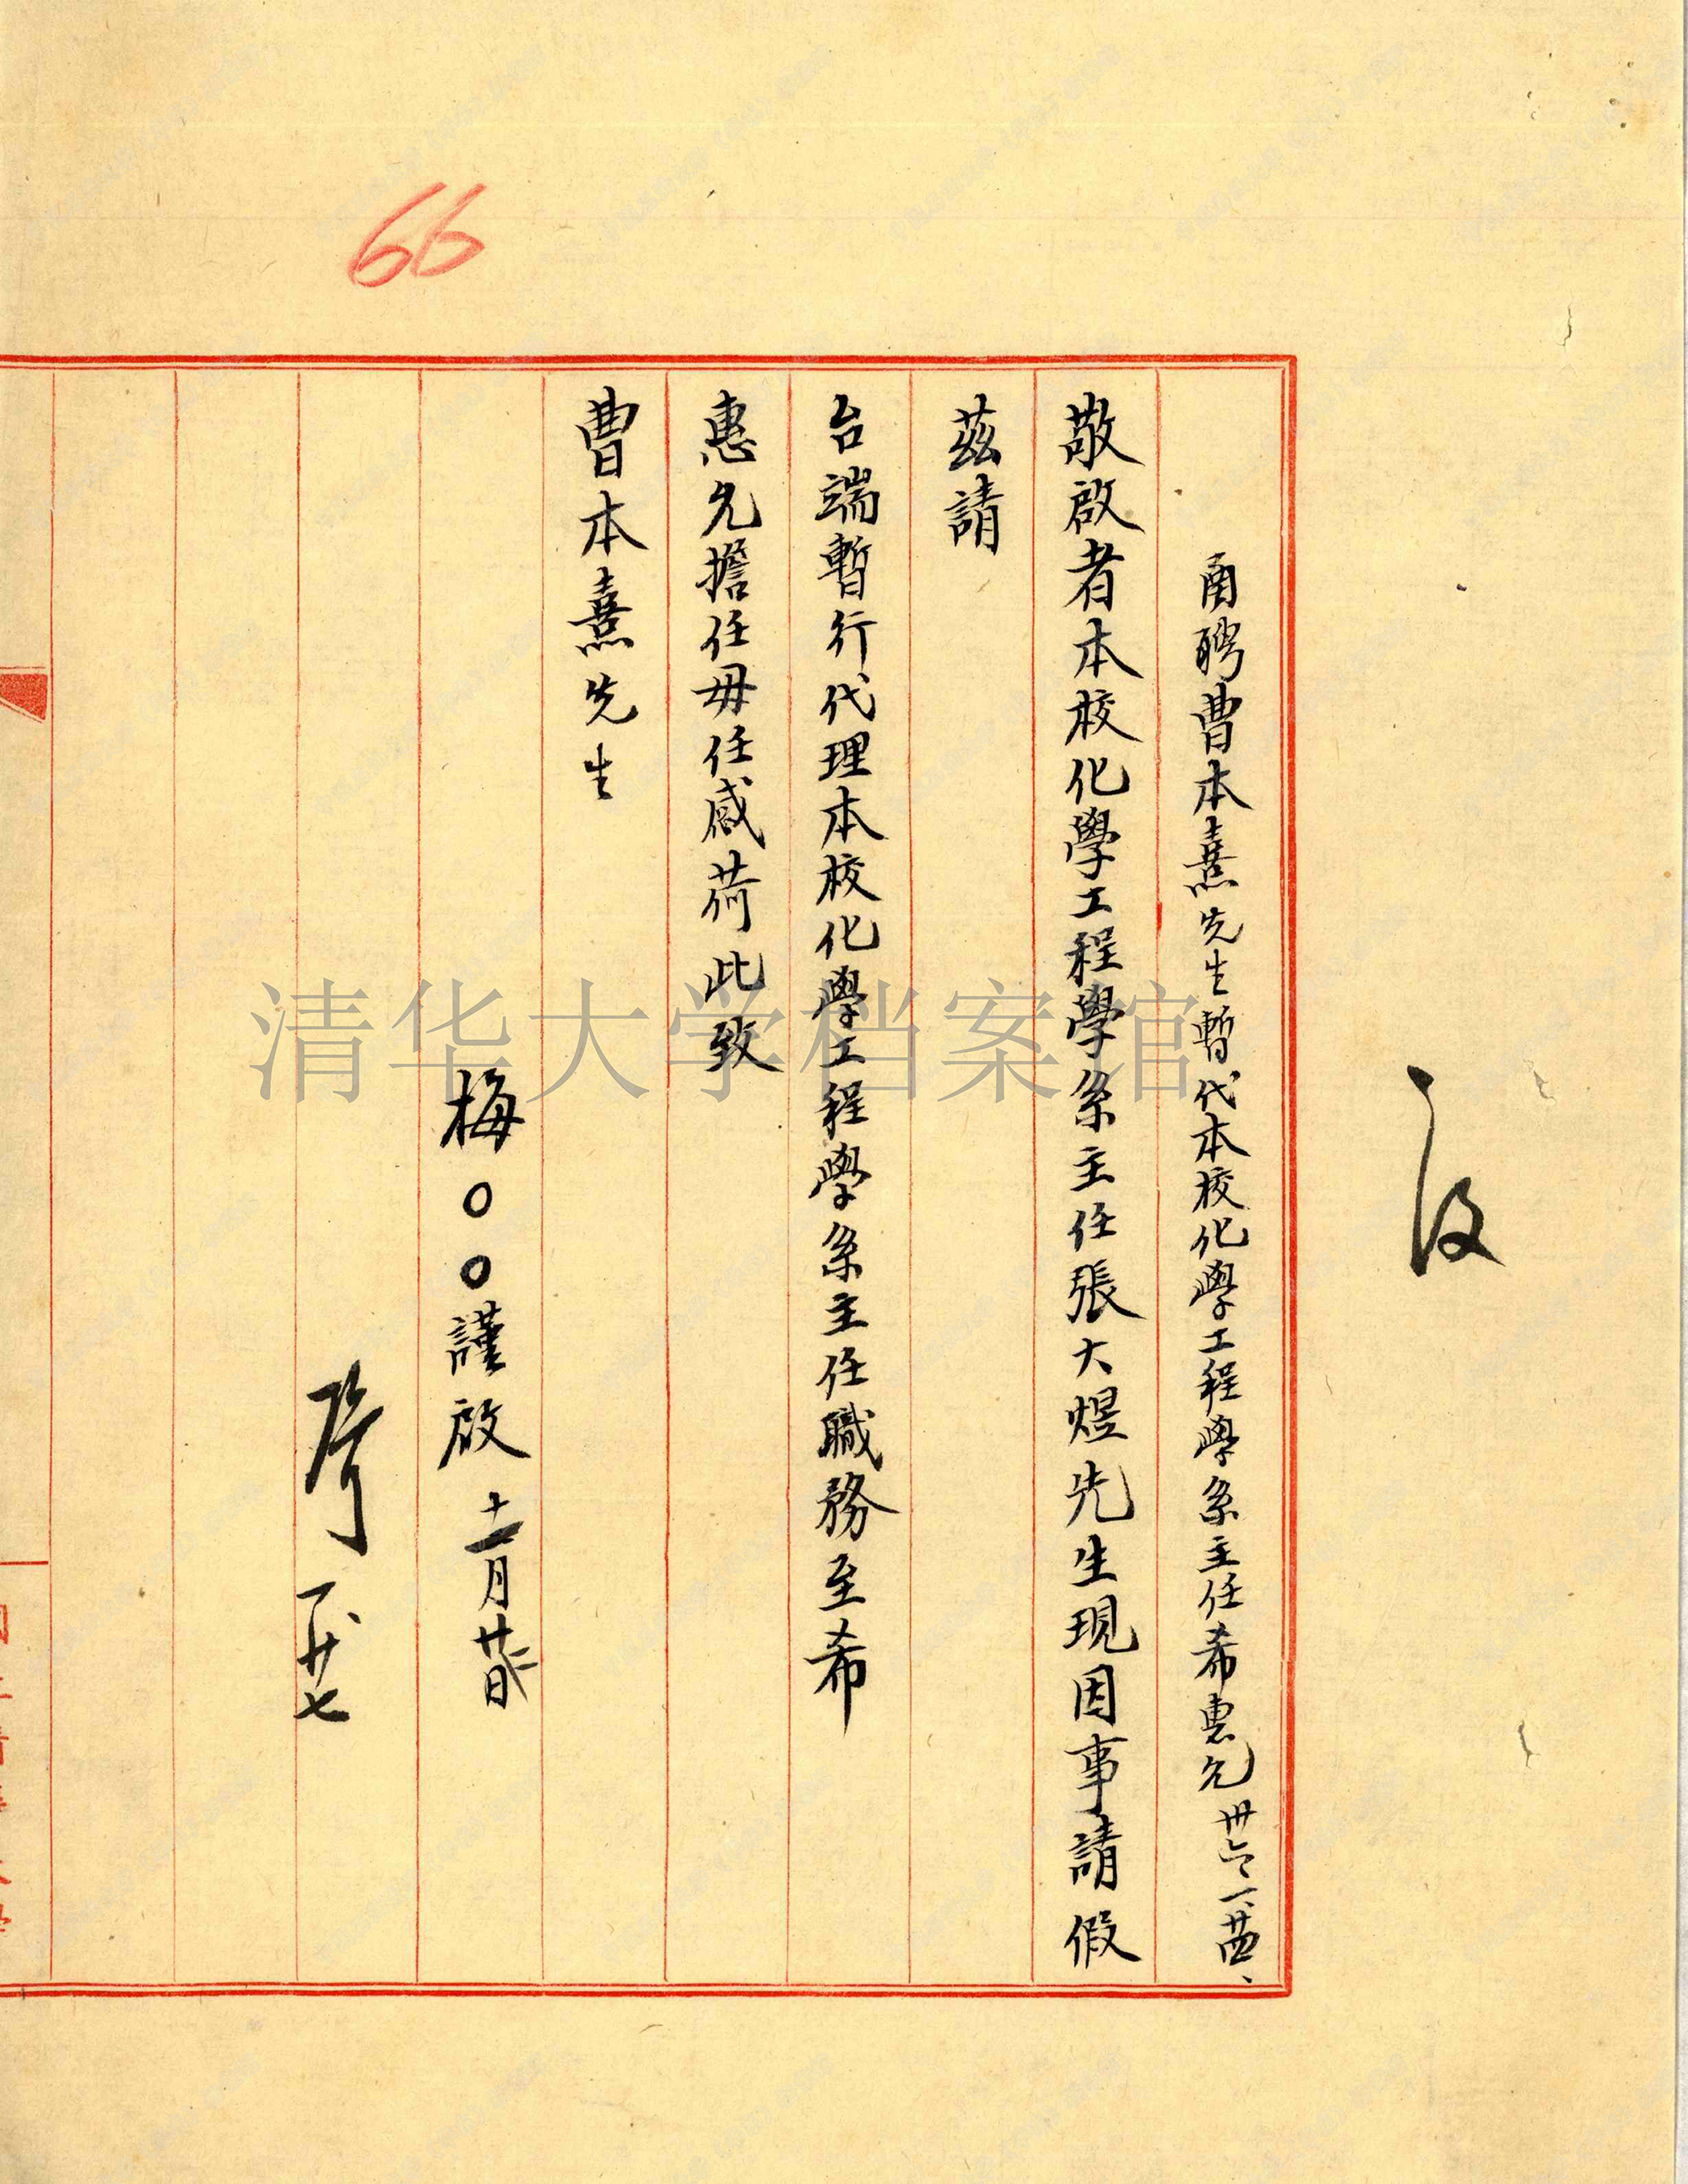 66
函聘曹本熹先生暫代本校化學工程學系主任希惠允 卅六、一、廿四、
敬啟者本校化學工程學系主任張大煜先生現因事請假
茲請
台端暫行代理本校化學工程學系主任職務至希
惠允擔任毋任感荷此致
曹本熹先生
梅○○謹啟 月 日
一 廿七
清华大学档案馆